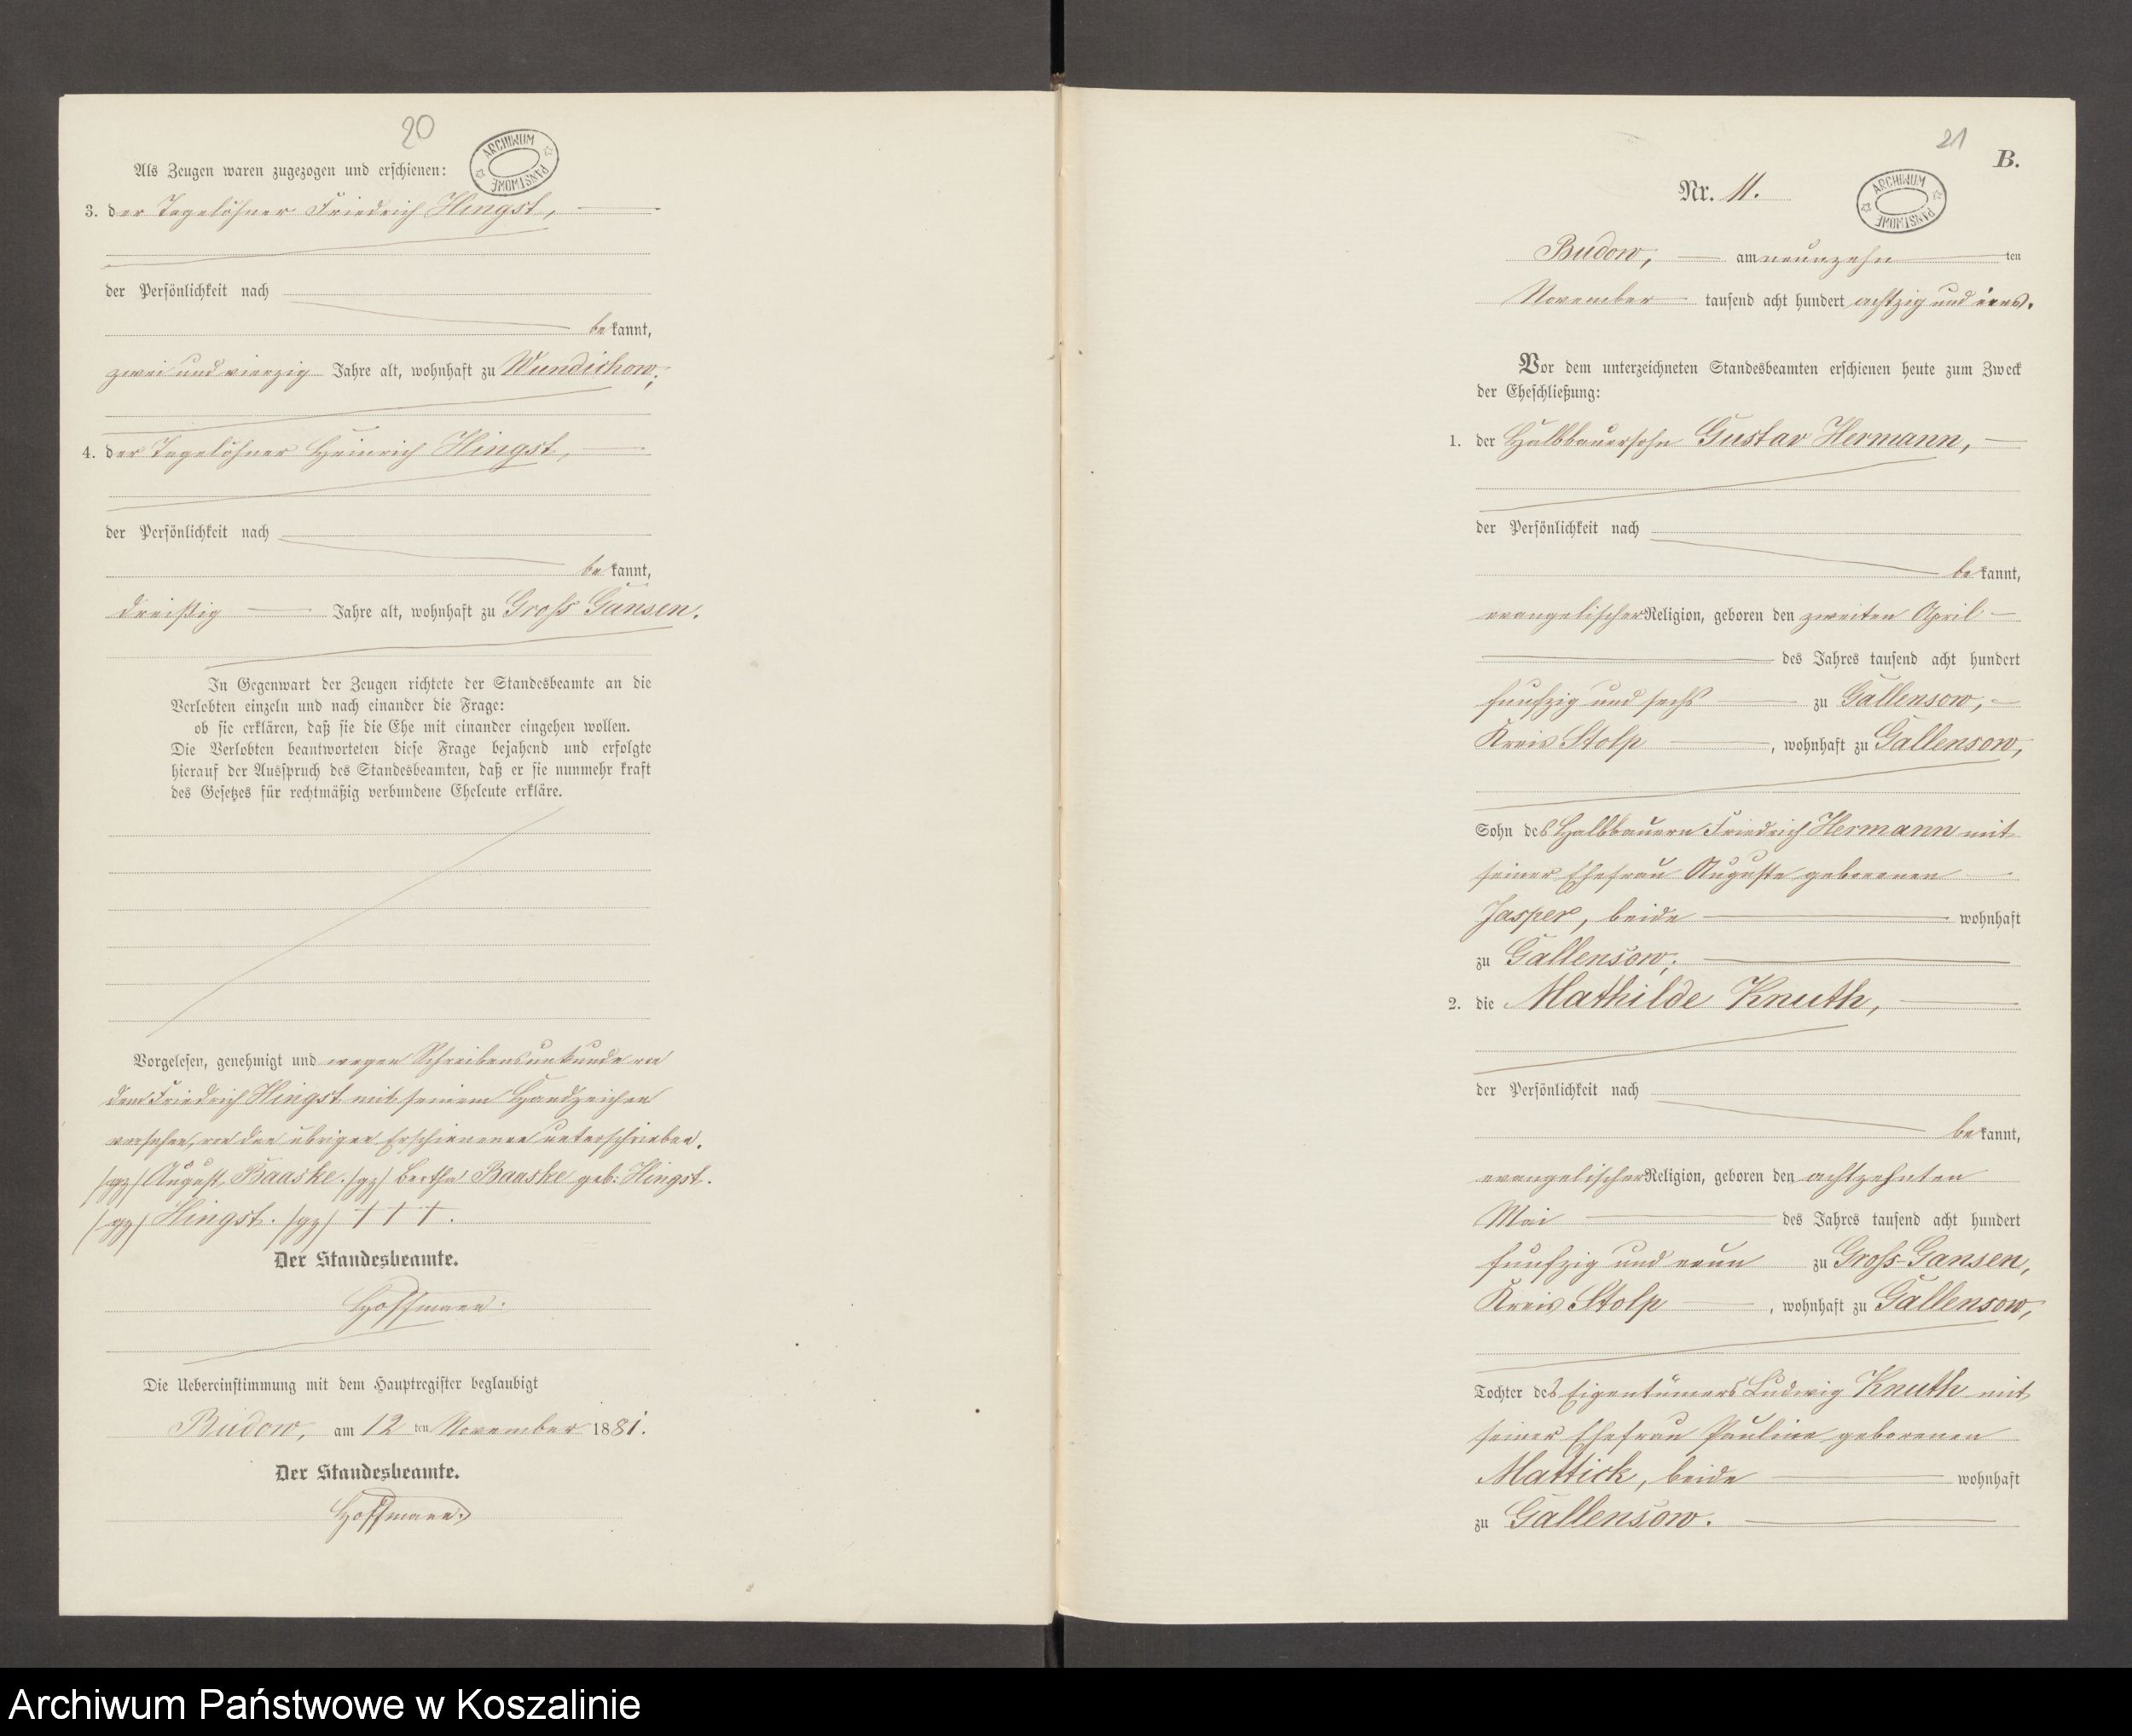 20
ARCHIWUM PAŃSTWOWE
Als Zeugen waren zugezogen und erschienen:
3. der Tagelöhner Friedrich Hingst,
der Persönlichkeit nach
bekannt,
zwei und vierzig Jahre alt, wohnhaft zu Wundichow;
4. der Tagelöhner Heinrich Hingst,
der Persönlichkeit nach
bekannt,
dreißig Jahre alt, wohnhaft zu Groß Gansen.
In Gegenwart der Zeugen richtete der Standesbeamte an die
Verlobten einzeln und nach einander die Frage:
ob sie erklären, daß sie die Ehe mit einander eingehen wollen.
Die Verlobten beantworteten diese Frage bejahend und erfolgte
hierauf der Ausspruch des Standesbeamten, daß er sie nunmehr kraft
des Gesetzes für rechtmäßig verbundene Eheleute erkläre.
Vorgelesen, genehmigt und wegen Schreibensunkunde von
dem Friedrich Hingst mit seinem Handzeichen
versehen, von den übrigen Erschienenen unterschrieben.
/gz/ August Baaske. /gz/ Bertha Baaske geb: Hingst.
/gz/ Hingst. /gz/ + + +.
Der Standesbeamte.
Hoffmann.
Die Uebereinstimmung mit dem Hauptregister beglaubigt
Budow, am 12 ten November 1881.
Der Standesbeamte.
Hoffmann.
21
B.
Nr. 11.
ARCHIWUM PAŃSTWOWE
Budow, am neunzehn ten
November tausend acht hundert achtzig und eins.
Vor dem unterzeichneten Standesbeamten erschienen heute zum Zweck
der Eheschließung:
1. der Halbbauersohn Gustav Hermann,
der Persönlichkeit nach
bekannt,
evangelischer Religion, geboren den zweiten April
des Jahres tausend acht hundert
fünfzig und sechs zu Gallensow,
Kreis Stolp, wohnhaft zu Gallensow,
Sohn des Halbbauern Friedrich Hermann mit
seiner Ehefrau Auguste geborenen
Jasper, beide wohnhaft
zu Gallensow;
2. die Mathilde Knuth,
der Persönlichkeit nach
bekannt,
evangelischer Religion, geboren den achtzehnten
Mai des Jahres tausend acht hundert
fünfzig und neun zu Groß-Gansen,
Kreis Stolp, wohnhaft zu Gallensow,
Tochter des Eigentümers Ludwig Knuth mit
seiner Ehefrau Pauline geborenen
Mattick, beide wohnhaft
zu Gallensow.
Archiwum Państwowe w Koszalinie